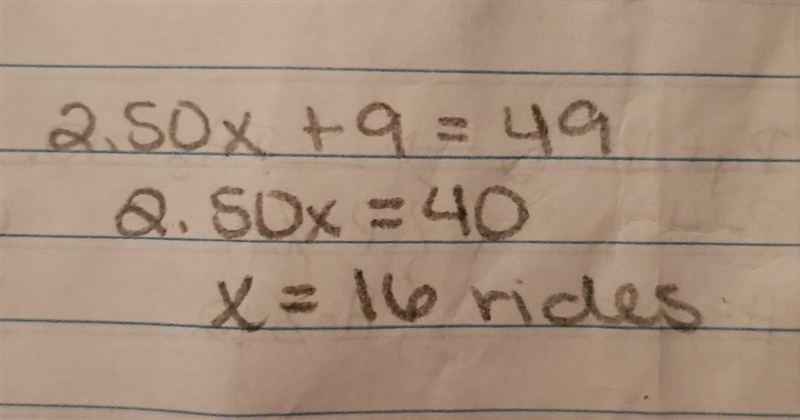 2.50x + 9 = 49
2.50x = 40
x = 16 rides